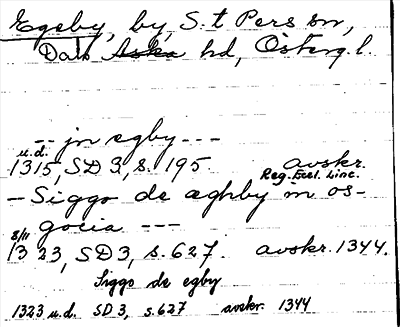 Egeby, by, S:t Pers sn,
Dals Aska hd, Österg.l.
-- jn egby ---
u.d.
1315, SD 3, s. 195 avskr.
Reg. Eccl. Linc.
- Siggo de æghby in os-
gocia ---
8/11
1323, SD3, s. 627. avskr. 1344.
Siggo de egby
1323 u.d. SD 3, s. 627 avskr. 1344